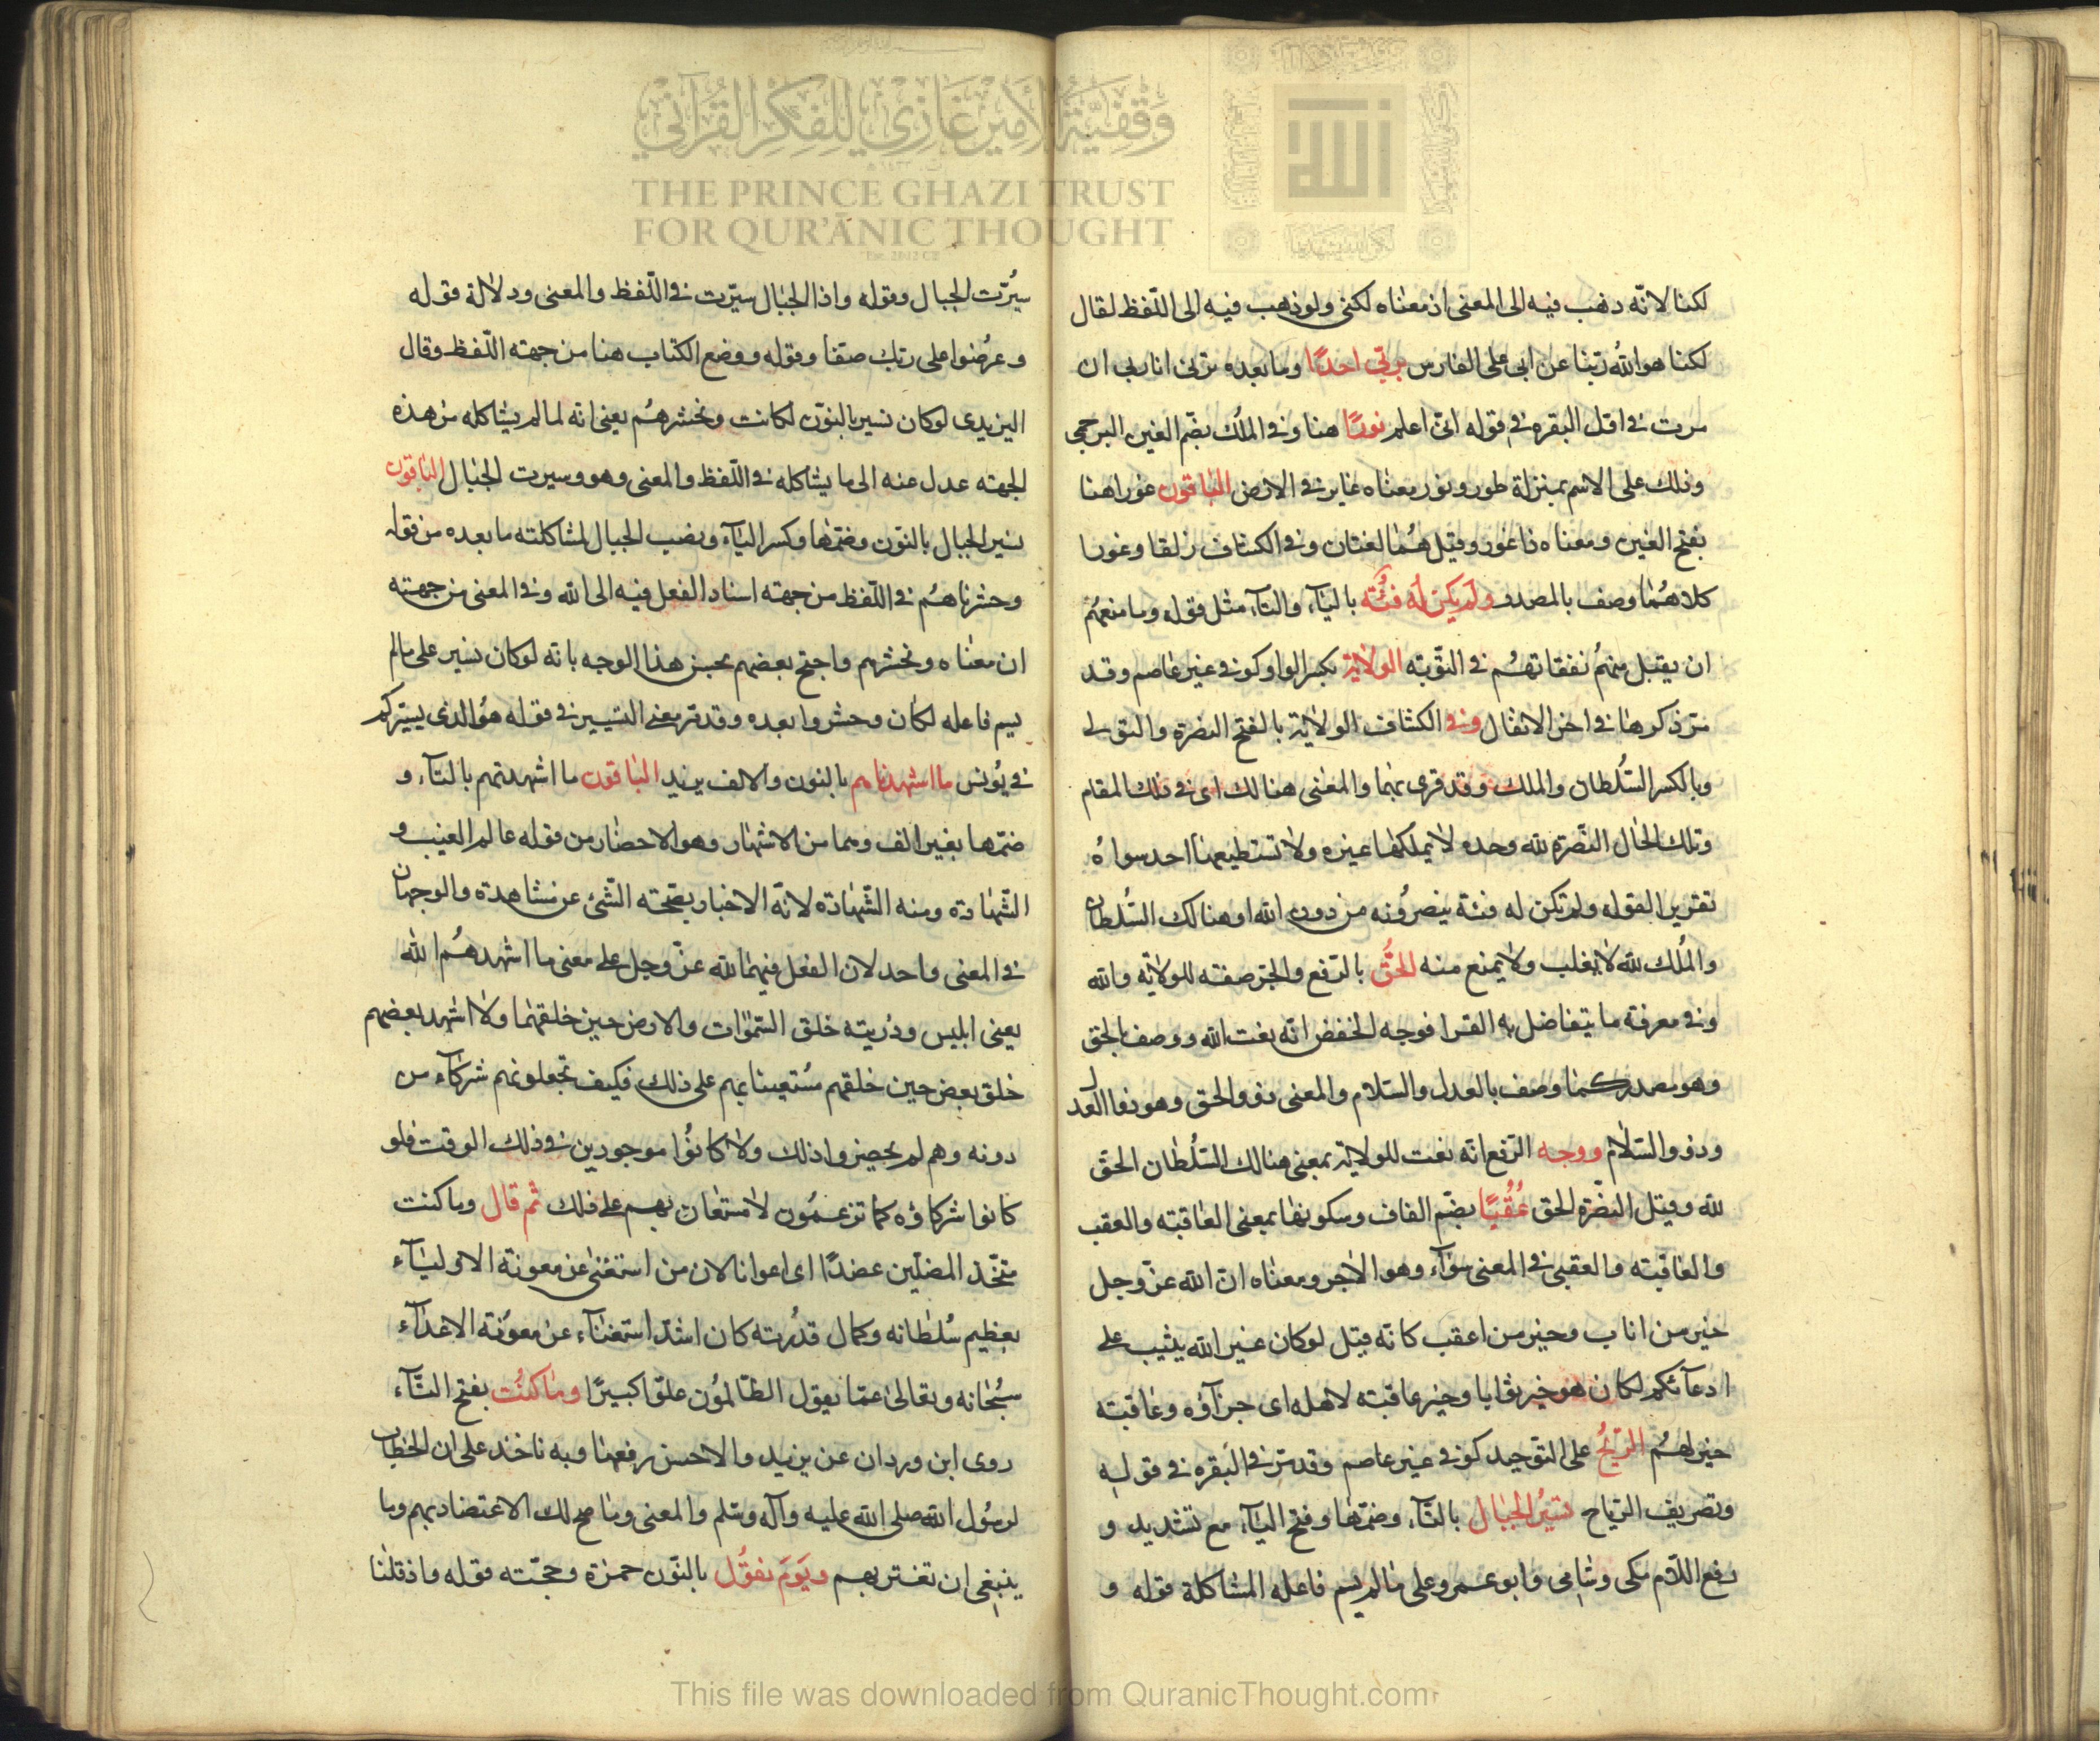 وقفية الأمير غازي للفكر القرآني
THE PRINCE GHAZI TRUST
FOR QUR'ĀNIC THOUGHT
الله
لكنا لانّه ذهب فيه الى المعنى اذ معناه لكنى ولو ذهب فيه الى اللّفظ لقال
لكنا هو اللهُ ربّنا عن ابى على الفارس بربّي احدًا وما بعده ترنى انا ربى ان
مرت فى اوّل البقره فى قوله انّى اعلم غورًا هنا وفى المُلك بضّم الغين البرجمى
وذلك على الاسم بمنزلة طور ونور ومعناه غاير فى الارض الباقون غورا هنا
بفتح الغين ومعناه ذا غور وقيل هُما لغتان وفى الكشاف زلقا وغورا
كلاهُما وصف بالمصدر ولم يكن لَهُ فئُته بالياء والتاء مثل قوله وما منعهُم
ان يقبل منهُم نفقاتهُم فى التّوبته الولاية بكسر الواو كوفى غير عاصم وقد
مّر ذكرها فى اخر الانفال وفى الكشاف الولاية بالفتح النصرة والتولى
وبالكسر السُلطان والملك وقد قرئ بهما والمعنى هنالك اى فى ذلك المقام
وتلك الحال النّصرة لله وحده لا يملكها غيره ولا تستطيعها احد سواهُ
تقرير القوله ولم تكن له فئة ينصرُونه من دون الله او هنالك السُلطان
والمُلك لله لا يغلب ولا يمنع منه الحقُّ بالرّفع والجرّ صفته للولايّه والله
وفى معرفة ما يتفاضل به القرا فوجه الخفض انّه نعت الله ووصف بالحق
وهو مصدر كما وصف بالعدل والسّلام والمعنى ذو الحق وهو ذوا العدل
وذو السّلام ووجه الرّفع انّه نعت للولاية بمعنى هنالك السُلطان الحقّ
لله وقيل النصّرة الحق عُقُبًا بضّم القاف وسكونها بمعنى العاقبته والعقب
والعاقبته والعقبى فى المعنى سَوآء وهو الاجر ومعناه انّ الله عزّ وجل
خير من اناب وخير من اعقب كانّه قيل لو كان غير الله يثيب على
ادعآئكم لكان هو خير ثوابا وخير عاقبته لاهله اى جزآؤه وعاقبته
خير لهُم الرّيحُ على التّوحيد كوفى غير عاصم وقد مّر فى البقره فى قوله
وتصريف الرّياح تسيرُ الجبال بالتّاء وضمّها وفتح الياء مع تشديد و
رفع اللّام مكى وشامى وابو عمرو على ما لم يسم فاعله المشاكلة قوله و
سيُرّت الجبال وقوله واذا الجبال سيّرت فى اللّفظ والمعنى ودلالة قوله
وعرُضوا على ربّك صفّا وقوله ووضع الكتاب هنا من جهته اللّفظ وقال
اليزيدى لو كان نسير بالنوّن لكانت ونحشرهُم يعنى انّه لما لم يشاكله من هذه
الجهته عدل عنه الى ما يشاكله فى اللّفظ والمعنى وهو وسيرت الجبال الباقون
نسير الجبال بالنوّن وضمّها وكسر اليآء ونصب الجبال لمشاكلته ما بعده من قوله
وحشرناهُم فى اللّفظ من جهته اسناد الفعل فيه الى الله وفى المعنى من جهته
ان معناه ونحشرهم واحتج بعضهم بحسن هذا الوجه بانّه لو كان نسير على ما لم
يسم فاعله لكان وحشروا بعده وقد مّر معنى التسيير فى قوله هوُ الذى يسيّركم
فى يُونس ما اشهدناهم بالنون والالف يزيد الباقون ما اشهدتهم بالتآء و
ضمّها بغير الف وهما من الاشهاد وهو الاحضار من قوله عالم الغيب و
الشّهادة ومنه الشّهادة لانّه الاخبار بصّحته الشّئ عن مشاهدة والوجهان
فى المعنى واحد لان الفعل فيهما لله عزّ وجل على معنى ما اشهدهُم الله
يعنى ابليس وذريته خلق السّموات والارض حين خلقهما ولا اشهد بعضهم
خلق بعض حين خلقهم مُستعينا بهم على ذلك فكيف تجعلونهم شركآء من
دونه وهم لم يحضروا ذلك ولا كانوُا موجودين فى ذلك الوقت فلو
كانوا شركاؤه كما تزعمُون لاستعان بهم على ذلك ثم قال وما كنت
متخّذ المضلّين عضدًا اى اعوانا لان من استغنى عن معونة الاوليآء
بعظيم سُلطانه وكمال قدُرته كان اشدّ استغنآء عن معوُنته الاعدآء
سبُحانه وتعالى عمّا يقول الظّالموُن علوّا كبيرًا وما كنُت بفتح التّآء
روى ابن وردان عن يزيد والاحسن رفعها وبه ناخذ على ان الخطاب
لرسُول الله صلى الله عليه وآله وسّلم والمعنى وما صح لك الاعتضاد بهم وما
ينبغى ان تغتر بهم ويَومَ نقوُل بالنوّن حمزة وحجّته قوله واذ قلنا
This file was downloaded from QuranicThought.com